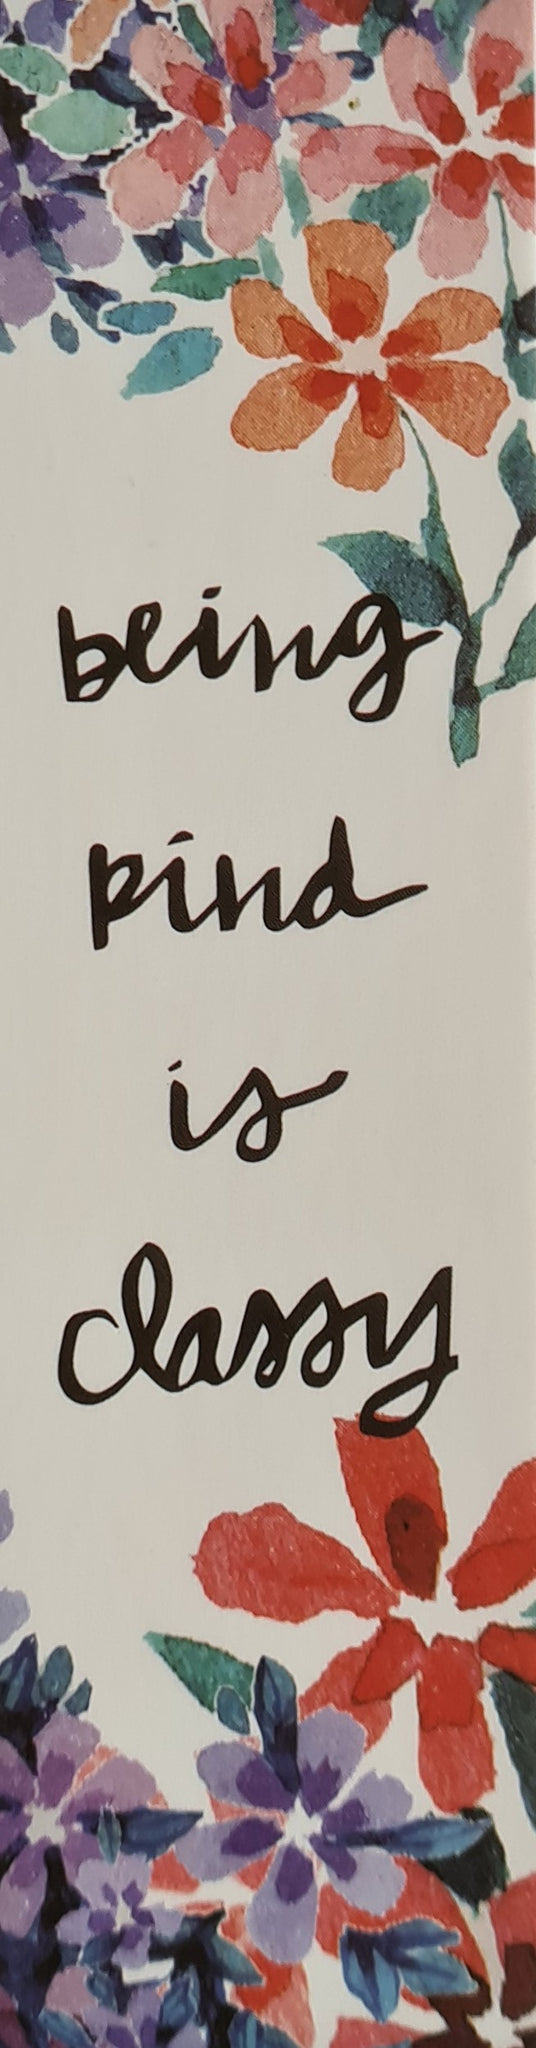 being
kind
is
classy